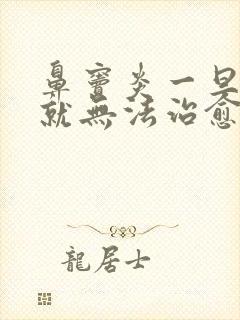 鼻竇炎一旦
就無法治愈
龍居士